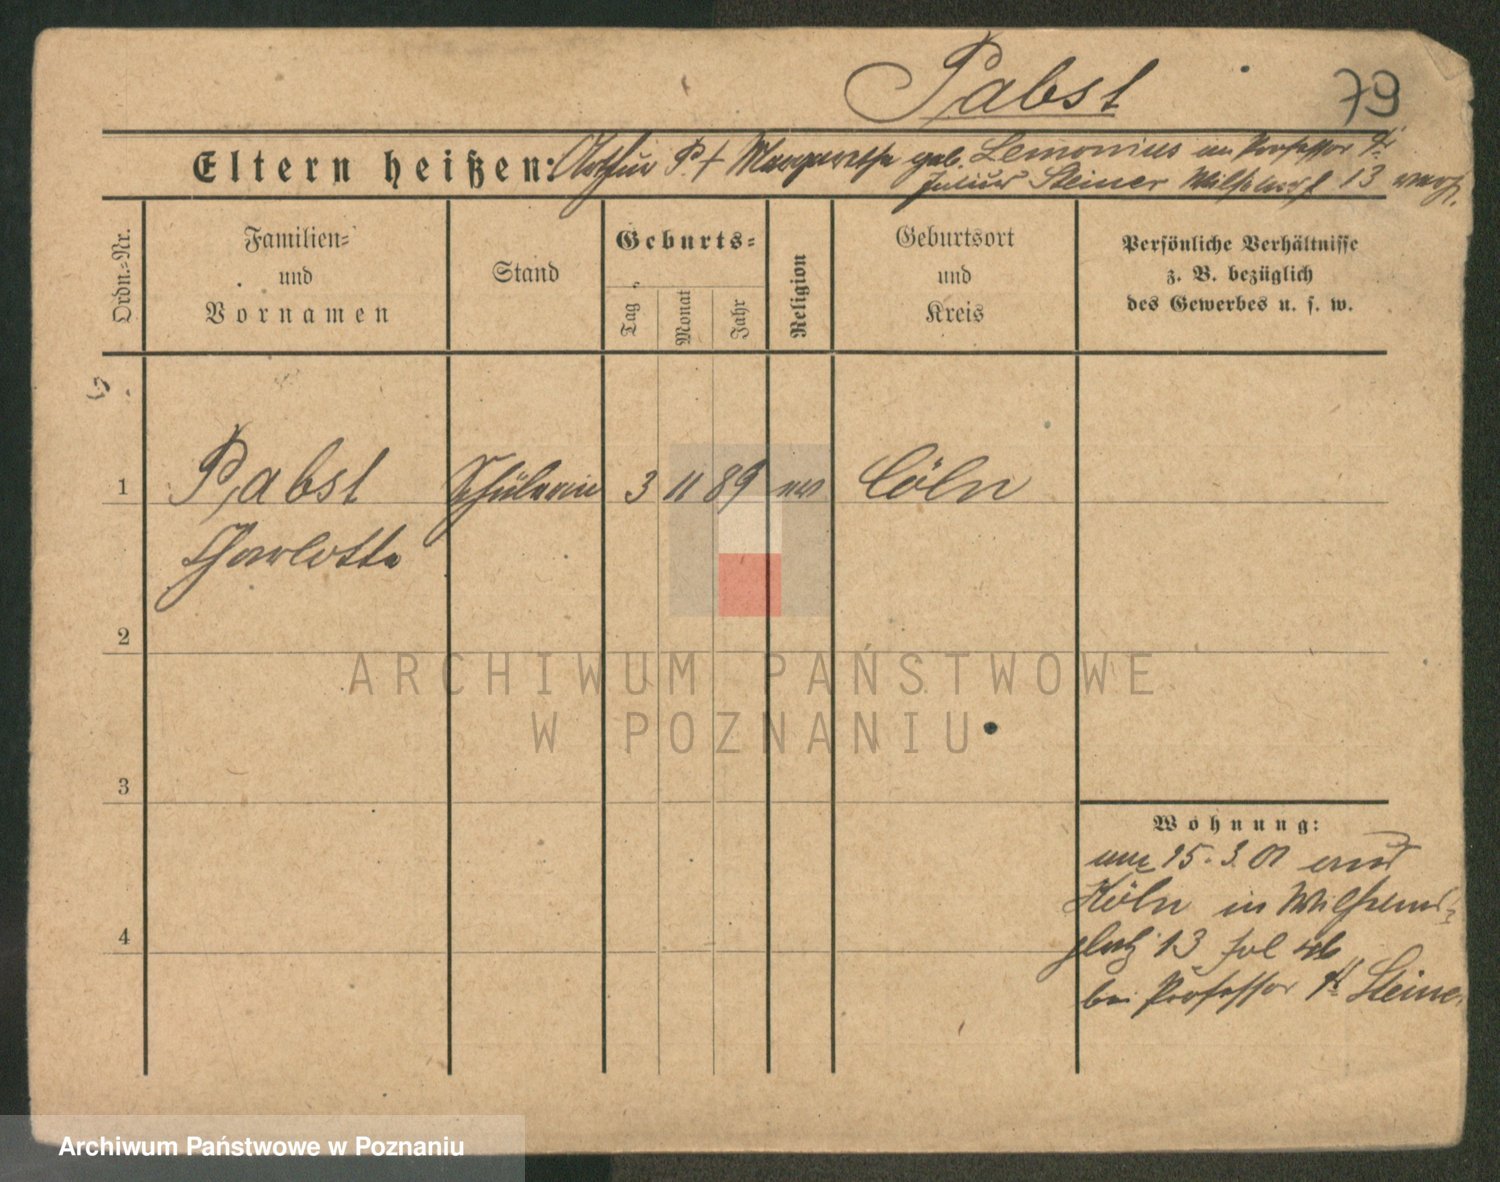 Pabst
79
Eltern heißen: Arthur P. + Margarethe geb. Lemonius Professor Dr
Julius Steiner 13
Ordn.-Nr.
Familien-
und
Vornamen
Stand
Geburts-
Tag
Monat
Jahr
Religion
Geburtsort
und
Kreis
Persönliche Verhältnisse
z. B. bezüglich
des Gewerbes u. s. w.
1 Pabst Schülerin 3 11 89 ev Cöln
Charlotte
2
ARCHIWUM PAŃSTWOWE
W POZNANIU
3
Wohnung:
15. 3. 01 aus
Köln in Wilhelms-
platz 13
4
bei Professor Dr Steiner
Archiwum Państwowe w Poznaniu